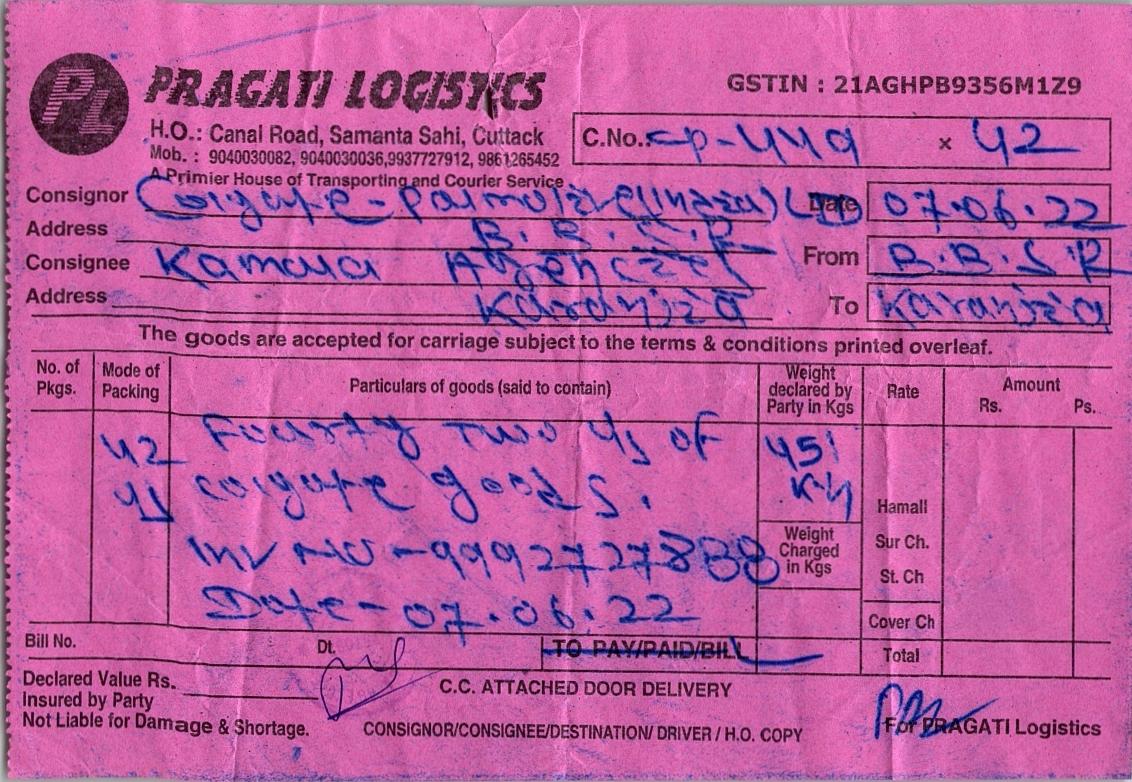 PL PRAGATI LOGISTICS
GSTIN : 21AGHPB9356M1Z9
H.O.: Canal Road, Samanta Sahi, Cuttack
Mob. : 9040030082, 9040030036,9937727912, 9861265452
A Primier House of Transporting and Courier Service
C.No.: cp-449 x 42
Consignor Colgate-Palmolive(India)LTD Date 07.06.22
Address B.B.S.R
Consignee Kamala Agencies From B.B.S.R
Address Karanjia To Karanjia
The goods are accepted for carriage subject to the terms & conditions printed overleaf.
No. of Pkgs. Mode of Packing Particulars of goods (said to contain) Weight declared by Party in Kgs Rate Amount Rs. Ps.
42 Fourty Two of 451
colgate goods. Hamali
Inv No-9992727888 Weight Charged in Kgs Sur Ch.
St. Ch
Date-07.06.22 Cover Ch
Bill No. Dt. TO PAY/PAID/BILL Total
Declared Value Rs. C.C. ATTACHED DOOR DELIVERY
Insured by Party
Not Liable for Damage & Shortage. CONSIGNOR/CONSIGNEE/DESTINATION/ DRIVER / H.O. COPY For PRAGATI Logistics